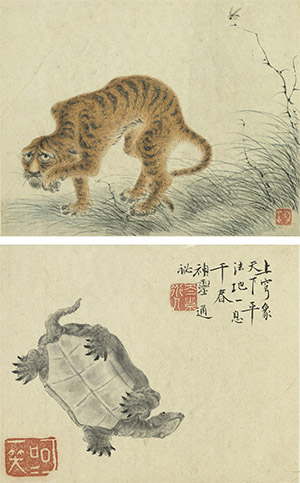 上穹象
天下平
法地一息
千春
神靈通
祕